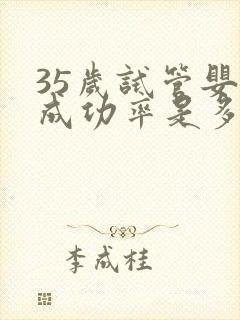 35歲試管嬰
成功率是多
李成桂